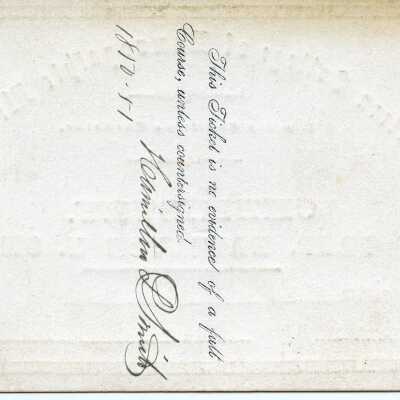 This Ticket is no evidence of a full
Course, unless countersigned.
Hamilton L Smith
1850-51